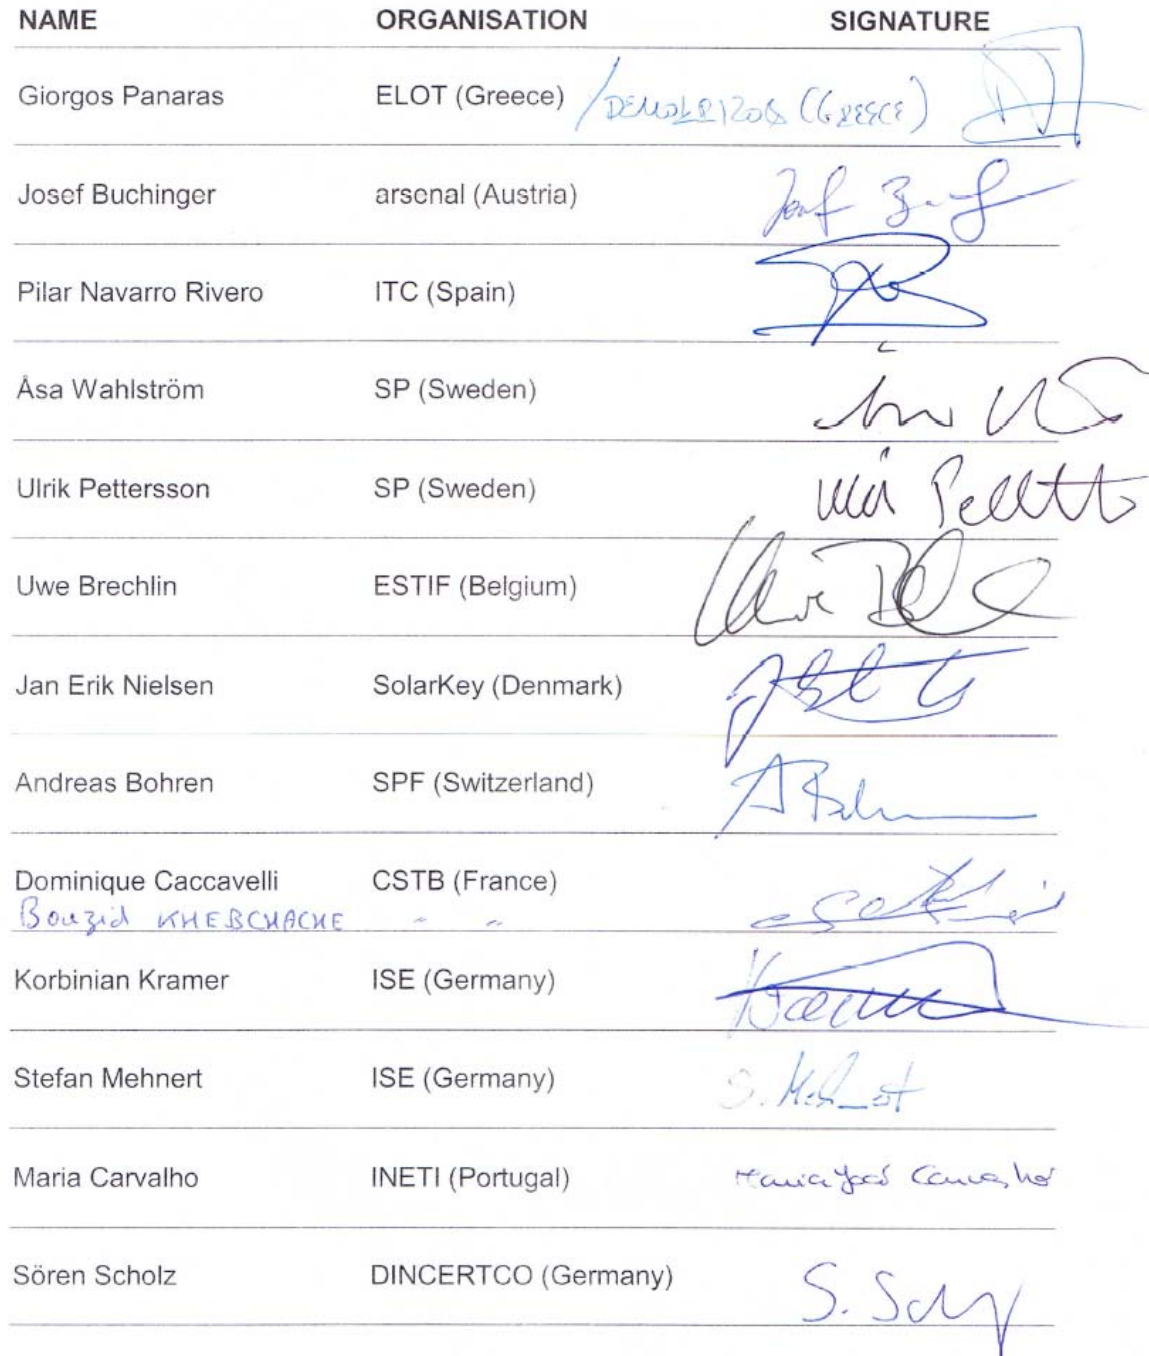 NAME ORGANISATION SIGNATURE
Giorgos Panaras ELOT (Greece) /DEMOKRITOS (GREECE)
Josef Buchinger arsenal (Austria)
Pilar Navarro Rivero ITC (Spain)
Åsa Wahlström SP (Sweden)
Ulrik Pettersson SP (Sweden)
Uwe Brechlin ESTIF (Belgium)
Jan Erik Nielsen SolarKey (Denmark)
Andreas Bohren SPF (Switzerland)
Dominique Caccavelli CSTB (France)
Bouzid KHEBCHACHE " "
Korbinian Kramer ISE (Germany)
Stefan Mehnert ISE (Germany) S. Mehnert
Maria Carvalho INETI (Portugal) Maria João Carvalho
Sören Scholz DINCERTCO (Germany)